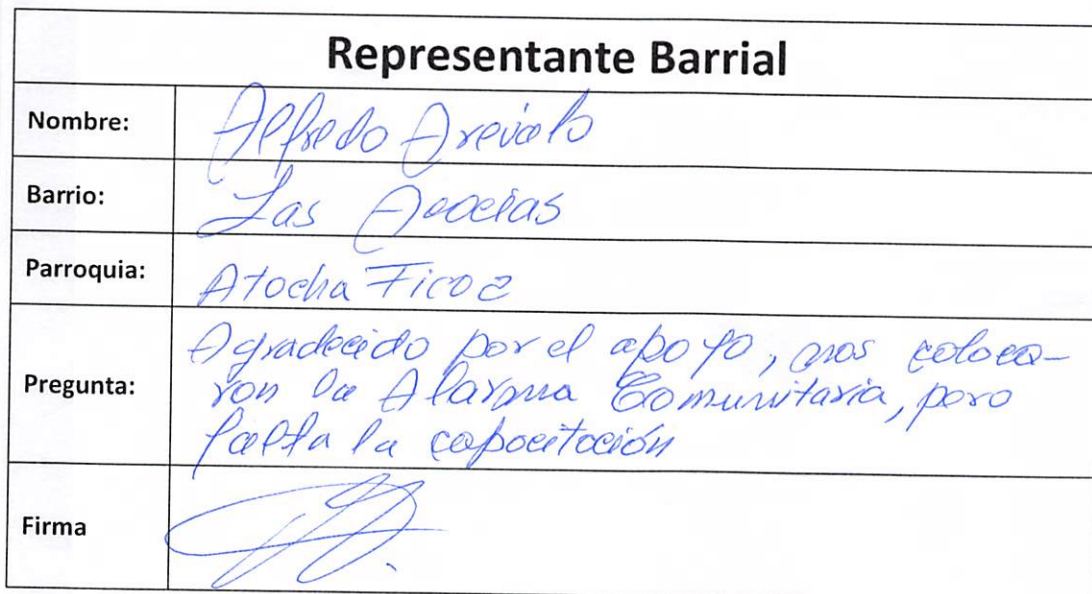 Representante Barrial
Nombre: Alfredo Arevalo
Barrio: Las Acacias
Parroquia: Atocha Ficoa
Pregunta: Agradecido por el apoyo, nos coloca-
ron la Alarma Comunitaria, pero
falta la capacitación
Firma